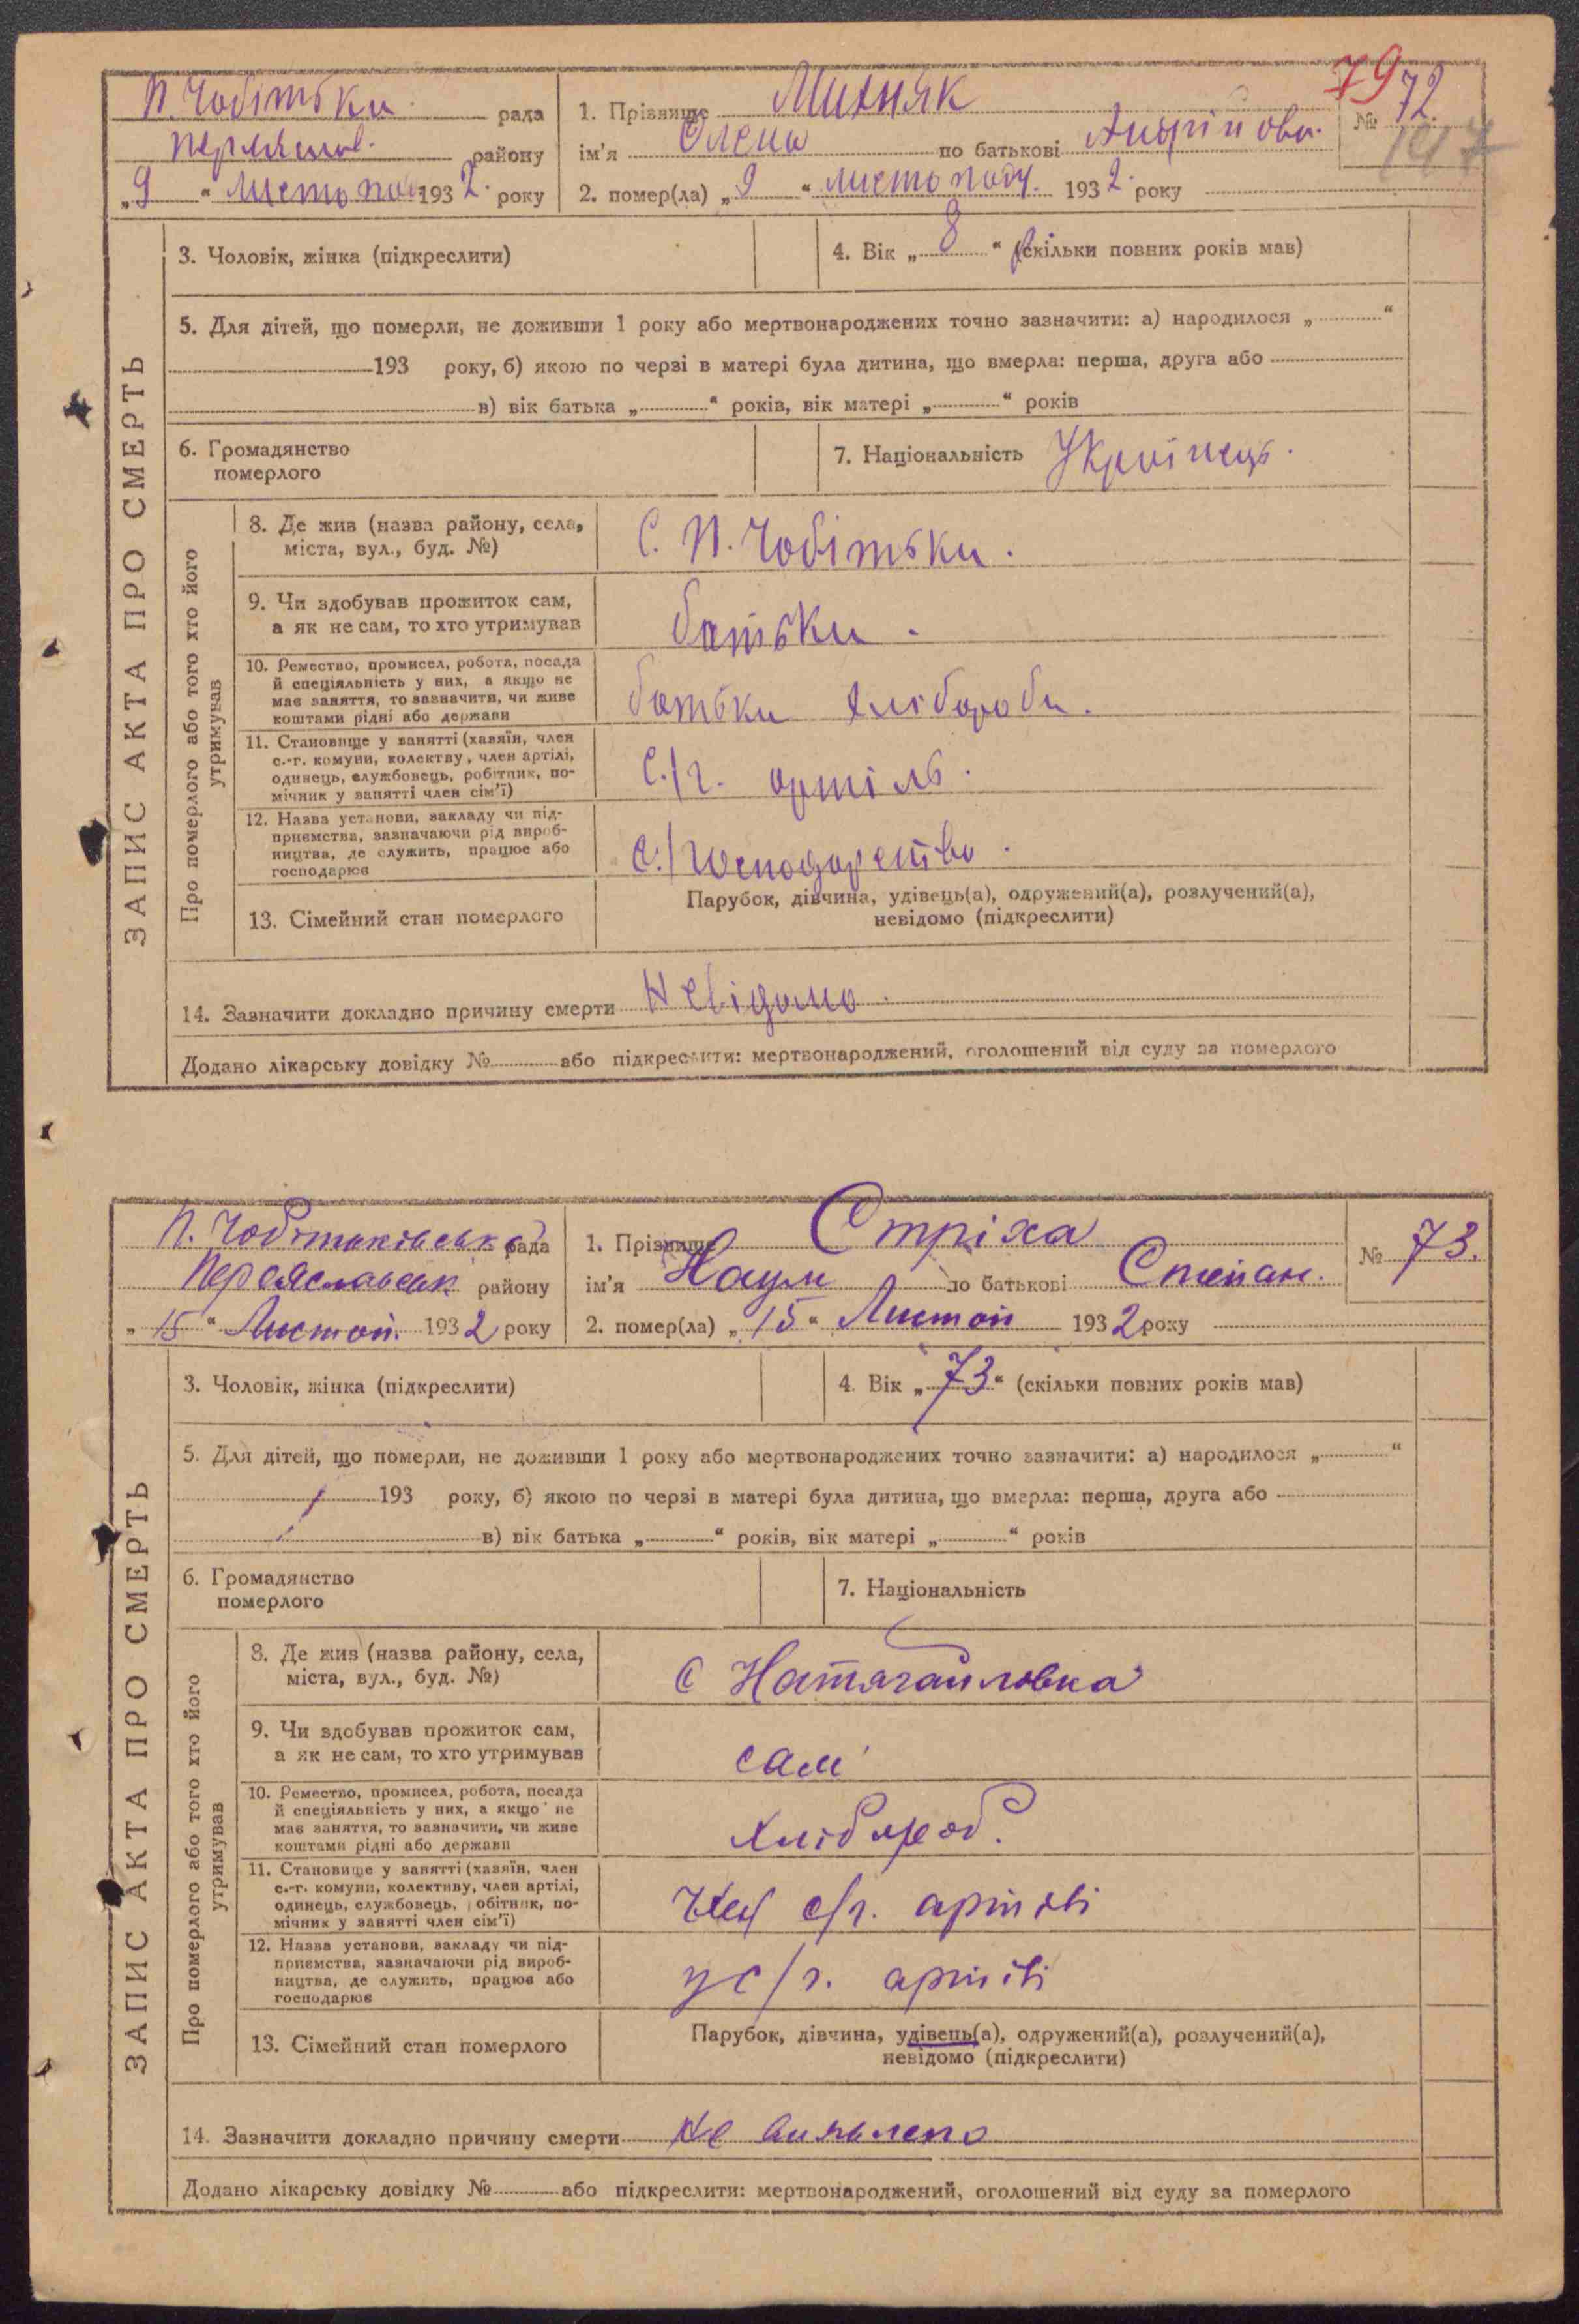 79
П. Чобітьки рада
1. Прізвище Михняк
№ 72.
147
Переяслав. району
ім'я Олена по батькові Андрійовн.
„9“ листопад 1932. року
2. помер(ла) „9“ листопаду. 1932. року
ЗАПИС АКТА ПРО СМЕРТЬ
3. Чоловік, жінка (підкреслити)
4. Вік „8“ (скільки повних років мав)
5. Для дітей, що померли, не доживши 1 року або мертвонароджених точно зазначити: а) народилося „ “
193 року, б) якою по черзі в матері була дитина, що вмерла: перша, друга або
в) вік батька „ “ років, вік матері „ “ років
6. Громадянство
померлого
7. Національність Українець.
Про померлого або того хто його
утримував
8. Де жив (назва району, села,
міста, вул., буд. №)
С. П. Чобітьки.
9. Чи здобував прожиток сам,
а як не сам, то хто утримував
батьки.
10. Ремество, промисел, робота, посада
й спеціяльність у них, а якщо не
має заняття, то зазначити, чи живе
коштами рідні або держави
батьки хлібороби.
11. Становище у занятті (хазяїн, член
с.-г. комуни, колективу, член артілі,
одинець, службовець, робітник, по-
мічник у занятті член сім'ї)
С./г. артіль.
12. Назва установи, закладу чи під-
приємства, зазначаючи рід вироб-
ництва, де служить, працює або
господарює
с./господарство.
13. Сімейний стан померлого
Парубок, дівчина, удівець(а), одружений(а), розлучений(а),
невідомо (підкреслити)
14. Зазначити докладно причину смерти Невідомо.
Додано лікарську довідку № або підкреслити: мертвонароджений, оголошений від суду за померлого
П. Чобітьківська рада
1. Прізвище Стріха
№ 73.
Переяславськ району
ім'я Наум по батькові Степан.
„15“ Листоп. 1932 року
2. помер(ла) „15“ Листоп 1932 року
ЗАПИС АКТА ПРО СМЕРТЬ
3. Чоловік, жінка (підкреслити)
4. Вік „73“ (скільки повних років мав)
5. Для дітей, що померли, не доживши 1 року або мертвонароджених точно зазначити: а) народилося „ “
193 року, б) якою по черзі в матері була дитина, що вмерла: перша, друга або
в) вік батька „ “ років, вік матері „ “ років
6. Громадянство
померлого
7. Національність
Про померлого або того хто його
утримував
8. Де жив (назва району, села,
міста, вул., буд. №)
с Натягайловка
9. Чи здобував прожиток сам,
а як не сам, то хто утримував
сам
10. Ремество, промисел, робота, посада
й спеціяльність у них, а якщо не
має заняття, то зазначити, чи живе
коштами рідні або держави
хлібороб.
11. Становище у занятті (хазяїн, член
с.-г. комуни, колективу, член артілі,
одинець, службовець, робітник, по-
мічник у занятті член сім'ї)
с/г. артілі
12. Назва установи, закладу чи під-
приємства, зазначаючи рід вироб-
ництва, де служить, працює або
господарює
у с/г. артілі
13. Сімейний стан померлого
Парубок, дівчина, удівець(а), одружений(а), розлучений(а),
невідомо (підкреслити)
14. Зазначити докладно причину смерти не виявлено
Додано лікарську довідку № або підкреслити: мертвонароджений, оголошений від суду за померлого